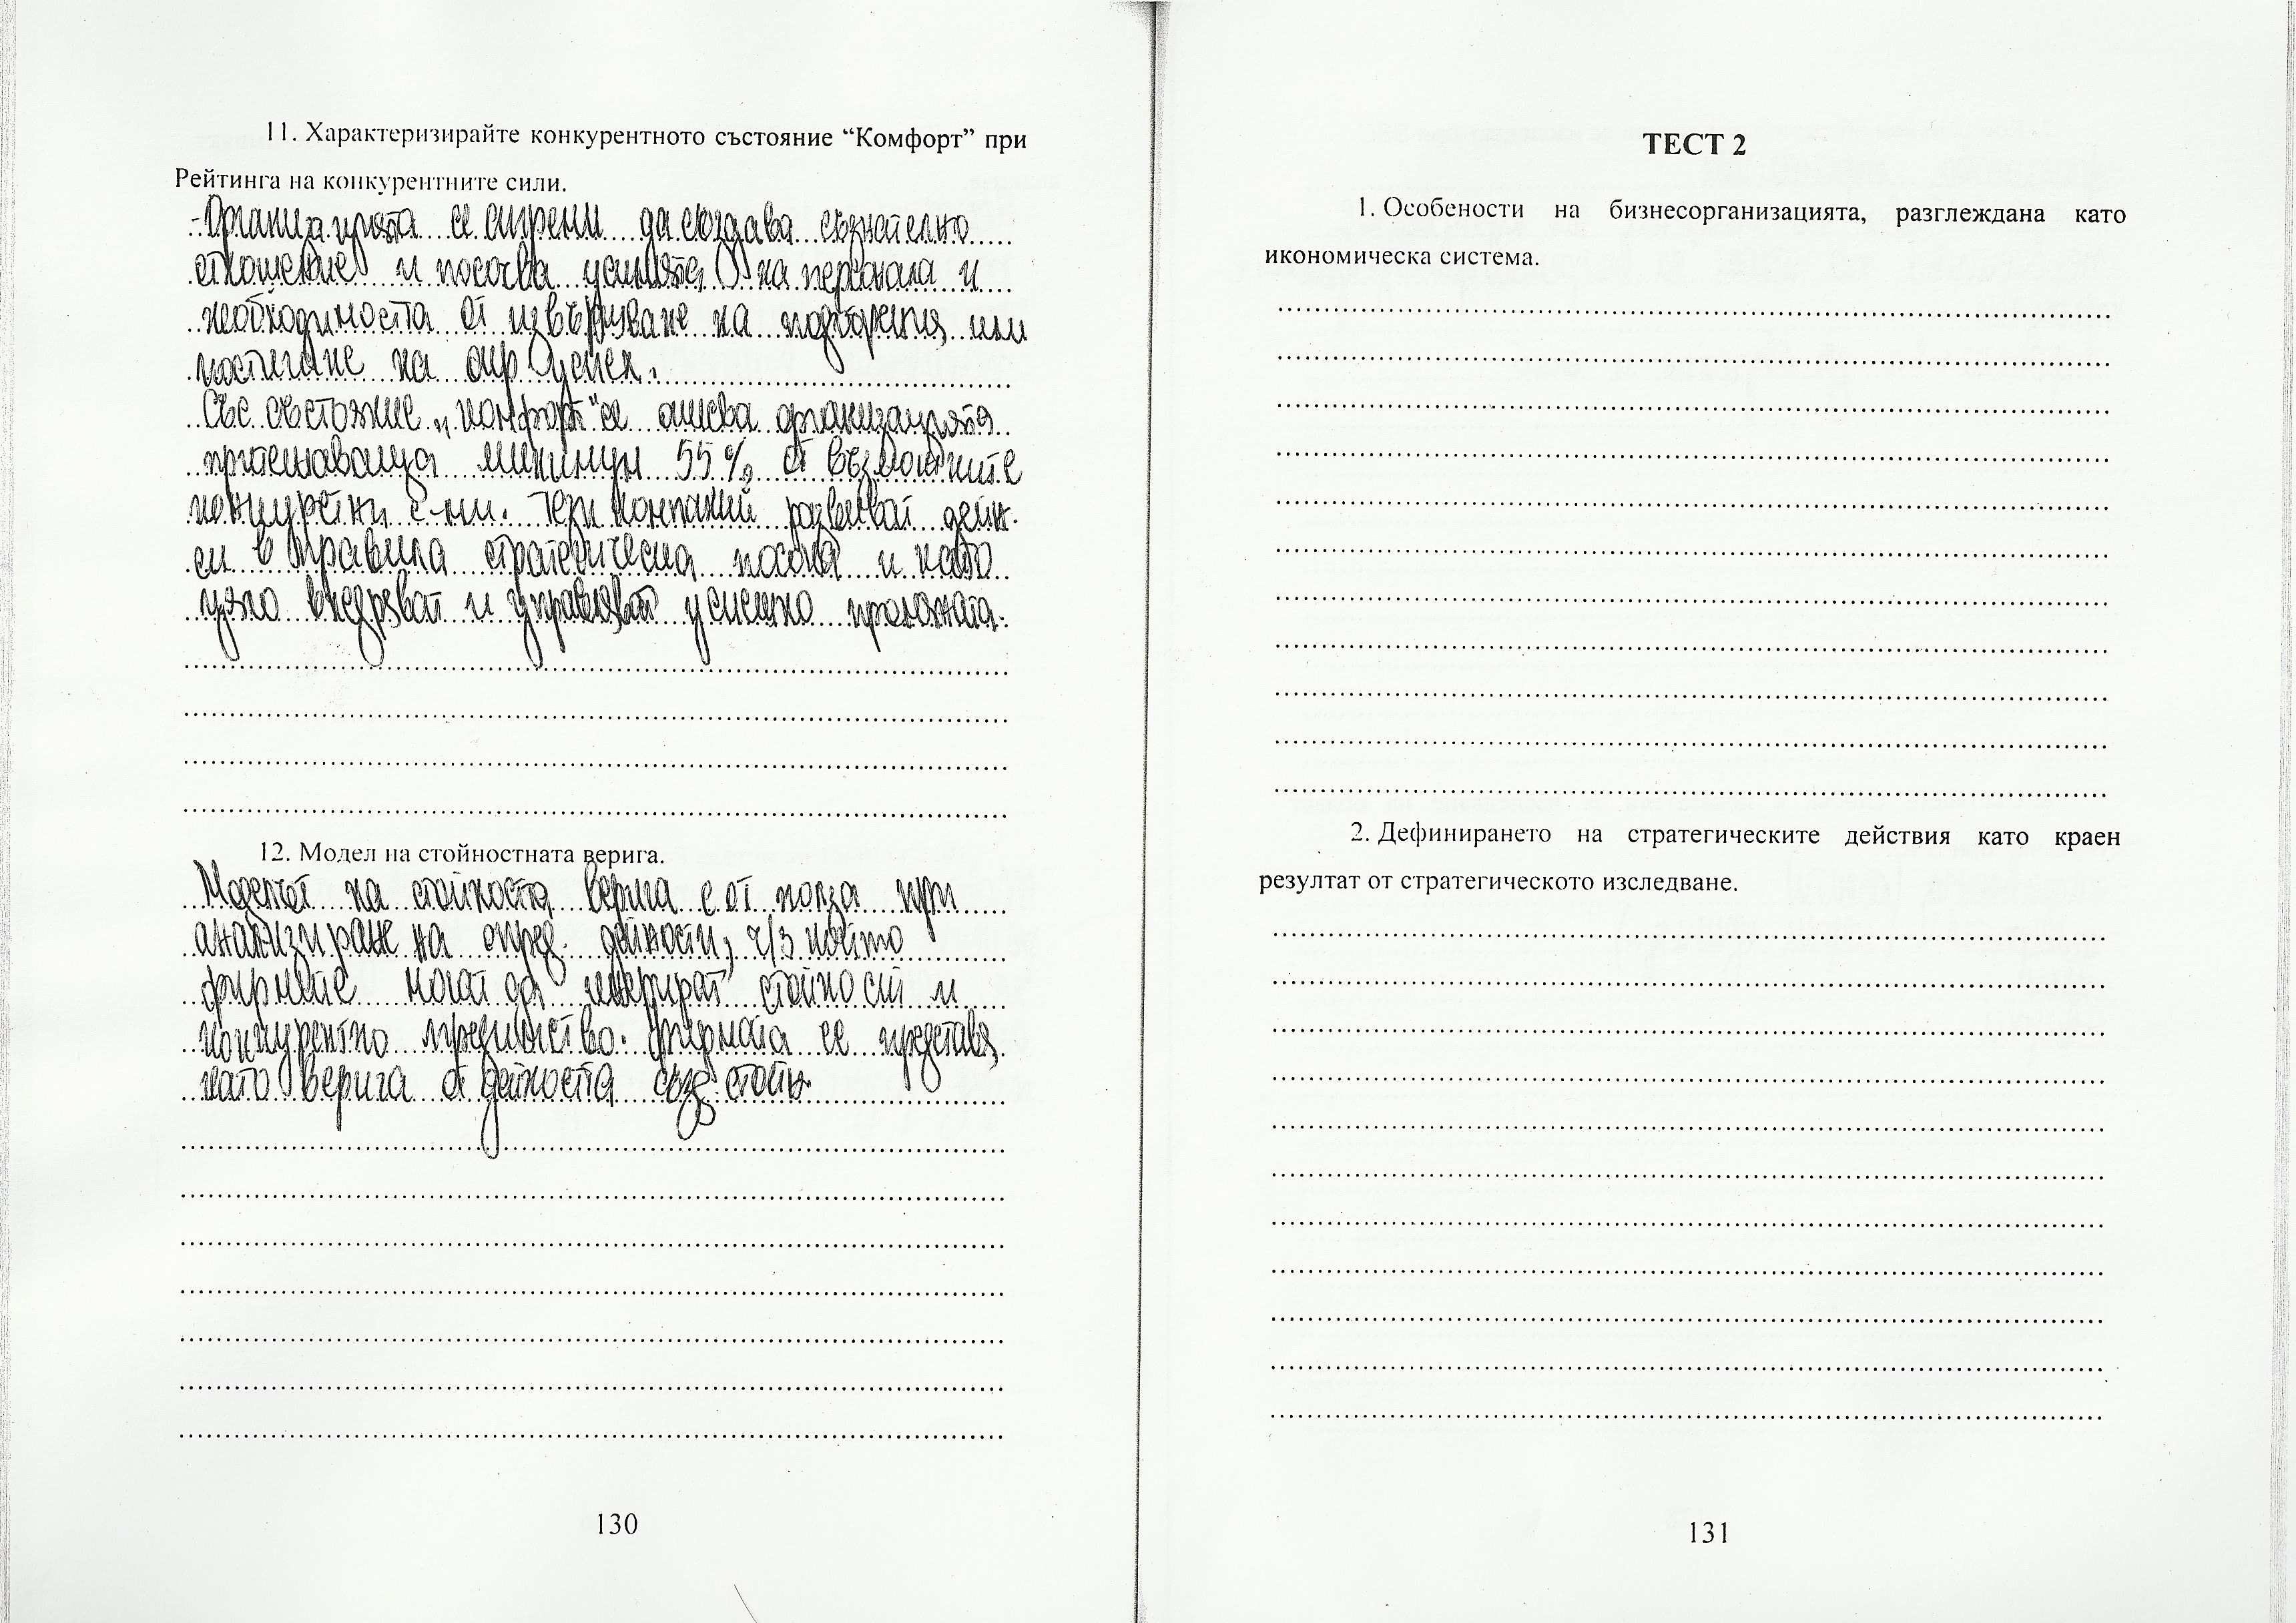 11. Характеризирайте конкурентното състояние “Комфорт” при
Рейтинга на конкурентните сили.
- Организацията се стреми да създава съзнателно
отношение и посочва усилията на персонала и
необходимостта от извършване на подобрения или
постигане на опр успех.
Със състояние „комфорт“ се описва организацията
притежаваща минимум 55% от възможните
конкурентни с-ни. Тези компании развиват дейн.
си в правилна стратегическа посока и като
цяло внедряват и управляват успешно промяната.
12. Модел на стойностната верига.
Моделът на стойностна верига е от полза при
анализиране на опред. дейности, ч/з който
фирмите могат да генерират стойност и
конкурентно предимство. Фирмата се представя
като верига от дейности създ стойн.
130
ТЕСТ 2
1. Особености на бизнесорганизацията, разглеждана като
икономическа система.
2. Дефинирането на стратегическите действия като краен
резултат от стратегическото изследване.
131